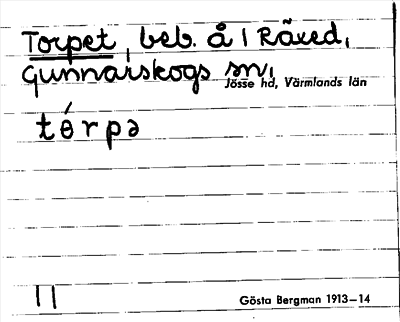 Torpet, beb. å 1 Räxed,
Gunnarskogs sn,
Jösse hd, Värmlands län
tórpə
11
Gösta Bergman 1913–14